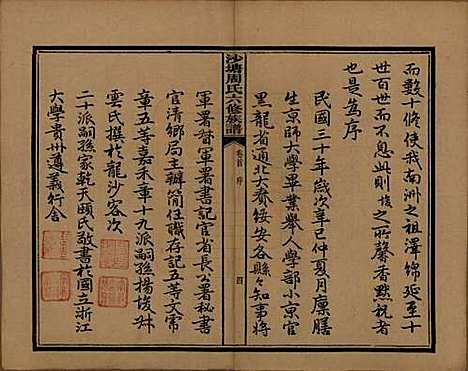 而數十脩使我南洲之祖澤錦延至十
世百世而不息此則埈之所馨香默祝者
也是為序
民國三十年歲次辛巳仲夏月廩膳
生京師大學畢業舉人學部小京官
黑龍省通北大賚綏安各縣縣知事將
沙塘周氏六修族譜
卷首 序
四
軍署督軍署書記官省長公署秘書
官清鄉局主辦簡任職存記五等大常
章五等嘉禾章十九派嗣孫揚埈
雲氏撰於龍沙客次
二十派嗣孫家乾天頤氏敬書於國立浙江
大學貴州遵義行舍